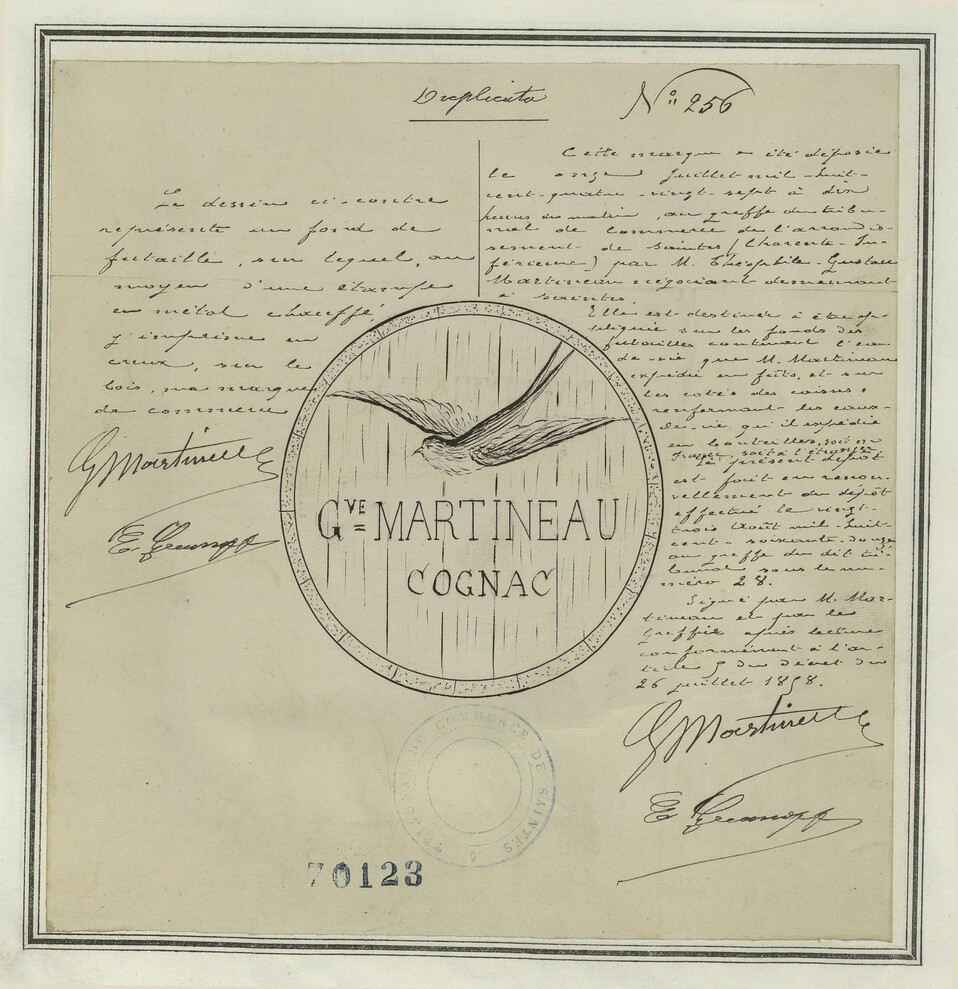 Duplicata
N° 256
Le dessin ci-contre
représente un fond de
futaille, sur lequel, au
moyen d'une étampe
en métal chauffé,
j'imprime en
creux, sur le
bois, ma marque
de commerce
GMartineau
Cette marque a été déposée
le onze Juillet mil-huit-
cent-quatre-vingt-sept à dix
heures du matin, au greffe du tribu-
nal de Commerce de l'arrondis-
sement de Saintes (Charente-In-
férieure) par M. Théophile-Gustave
Martineau négociant demeurant
à Saintes.
Elle est destinée à être ap-
pliquée sur les fonds des
futailles contenant l'eau-
de-vie que M. Martineau
expédie en fûts, et sur
les cotés des caisses
renfermant les eaux-
de-vie qu'il expédie
en bouteilles, soit en
France, soit à l'étranger.
Le présent dépôt
est fait en renou-
vellement du dépôt
effectué le vingt-
trois Août mil-huit-
cent-soixante-douze
au greffe du dit tri-
bunal sous le nu-
méro 28.
Signé par M. Mar-
tineau et par le
Greffier après lecture
conformément à l'ar-
ticle 5 du Décret du
26 juillet 1858.
GMartineau
GVE MARTINEAU
COGNAC
TRIBUNAL DE COMMERCE DE SAINTES
70123